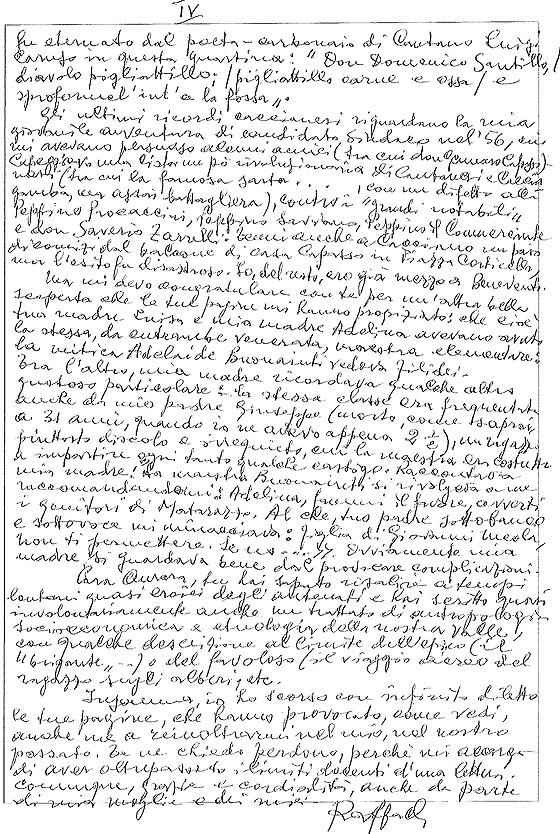 IV
fu eternato dal poeta-carbonaio di Cautano Luigi
Caruso in questa quartina: "Don Domenico Santillo, /
diavolo pigliattillo; / pigliattillo carne e ossa / e
sprofunnel'int'a la fossa".
Gli ultimi ricordi caccianesi riguardano la mia
giovanile avventura di candidato Sindaco nel '56, cui
mi avevano persuaso alcuni amici (tra cui don Gennaro Capasso)-
Capeggiavo una lista un po' rivoluzionaria di Cautanesi e Caccia
nesi (tra cui la famosa sarta..., con un difetto alla
gamba, ma assai battagliera), contro i "grandi notabili"
Peppino Procaccini, Peppino Il Commerciante
e don Saverio Zarrelli. Tenni anche a Cacciano un paio
di comizi dal balcone di casa Capasso in Piazza Corticella,
ma l'esito fu disastroso. Io, del resto, ero già mezzo a Benevento.
Ma mi devo congratulare con te per un'altra bella
scoperta che le tue pagine mi hanno propiziato: che cioè
tua madre Luisa e mia madre Adelina avevano avuto
la stessa, da entrambe venerata, maestra elementare:
la mitica Adelaide Buonaiuti vedova
Tra l'altro, mia madre ricordava qualche altro
gustoso particolare: la stessa classe era frequentata
anche da mio padre Giuseppe (morto, come saprai,
a 31 anni, quando io ne avevo appena 2 ½), un ragazzo
piuttosto discolo e irrequieto, cui la maestra era costretta
a impartire ogni tanto qualche castigo. Raccontava
mia madre: la maestra Buonaiuti si rivolgeva a me
raccomandandomi: Adelina, fammi il favore, avverti
i genitori di Matarazzo. Al che, tuo padre sottobanco
e sottovoce mi minacciava: figlia di Giovanni Meola,
non ti permettere. Se no...". Ovviamente mia
madre si guardava bene dal provocare complicazioni.
Cara Aurora, tu hai saputo risalire a tempi
lontani quasi eroici degli antenati e hai scritto quasi
involontariamente anche un trattato di antropologia
socioeconomica e etnologia della nostra valle,
con qualche descrizione al limite dell'epico (il
"brigante"...) o del favoloso (il viaggio aereo del
ragazzo sugli alberi), etc.
Insomma, io ho scorso con infinito diletto
le tue pagine, che hanno provocato, come vedi,
anche me a reinoltrarmi nel mio, nel nostro
passato. Te ne chiedo perdono, perché mi accorgo
di aver oltrepassato i limiti decenti d'una lettera.
Comunque, grazie e cordialità, anche da parte
di mia moglie e dei miei